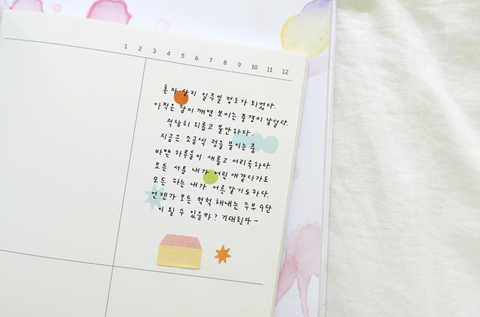 1 2 3 4 5 6 7 8 9 10 11 12
혼자 살지 일주일 정도가 되었다.
아직은 잠이 깨면 보이는 풍경이 낯설다.
적당히 외롭고 불안하다.
지금은 조금씩 정을 붙이는 중
바쁜 하루들이 새롭고 어리숙하다
모든 서툰 내가 어린애같다가도
모든 하는 내가 어른같기도하다.
언젠가 모든 척척 해내는 주부 9단
이 될 수 있을까? 기대된다~